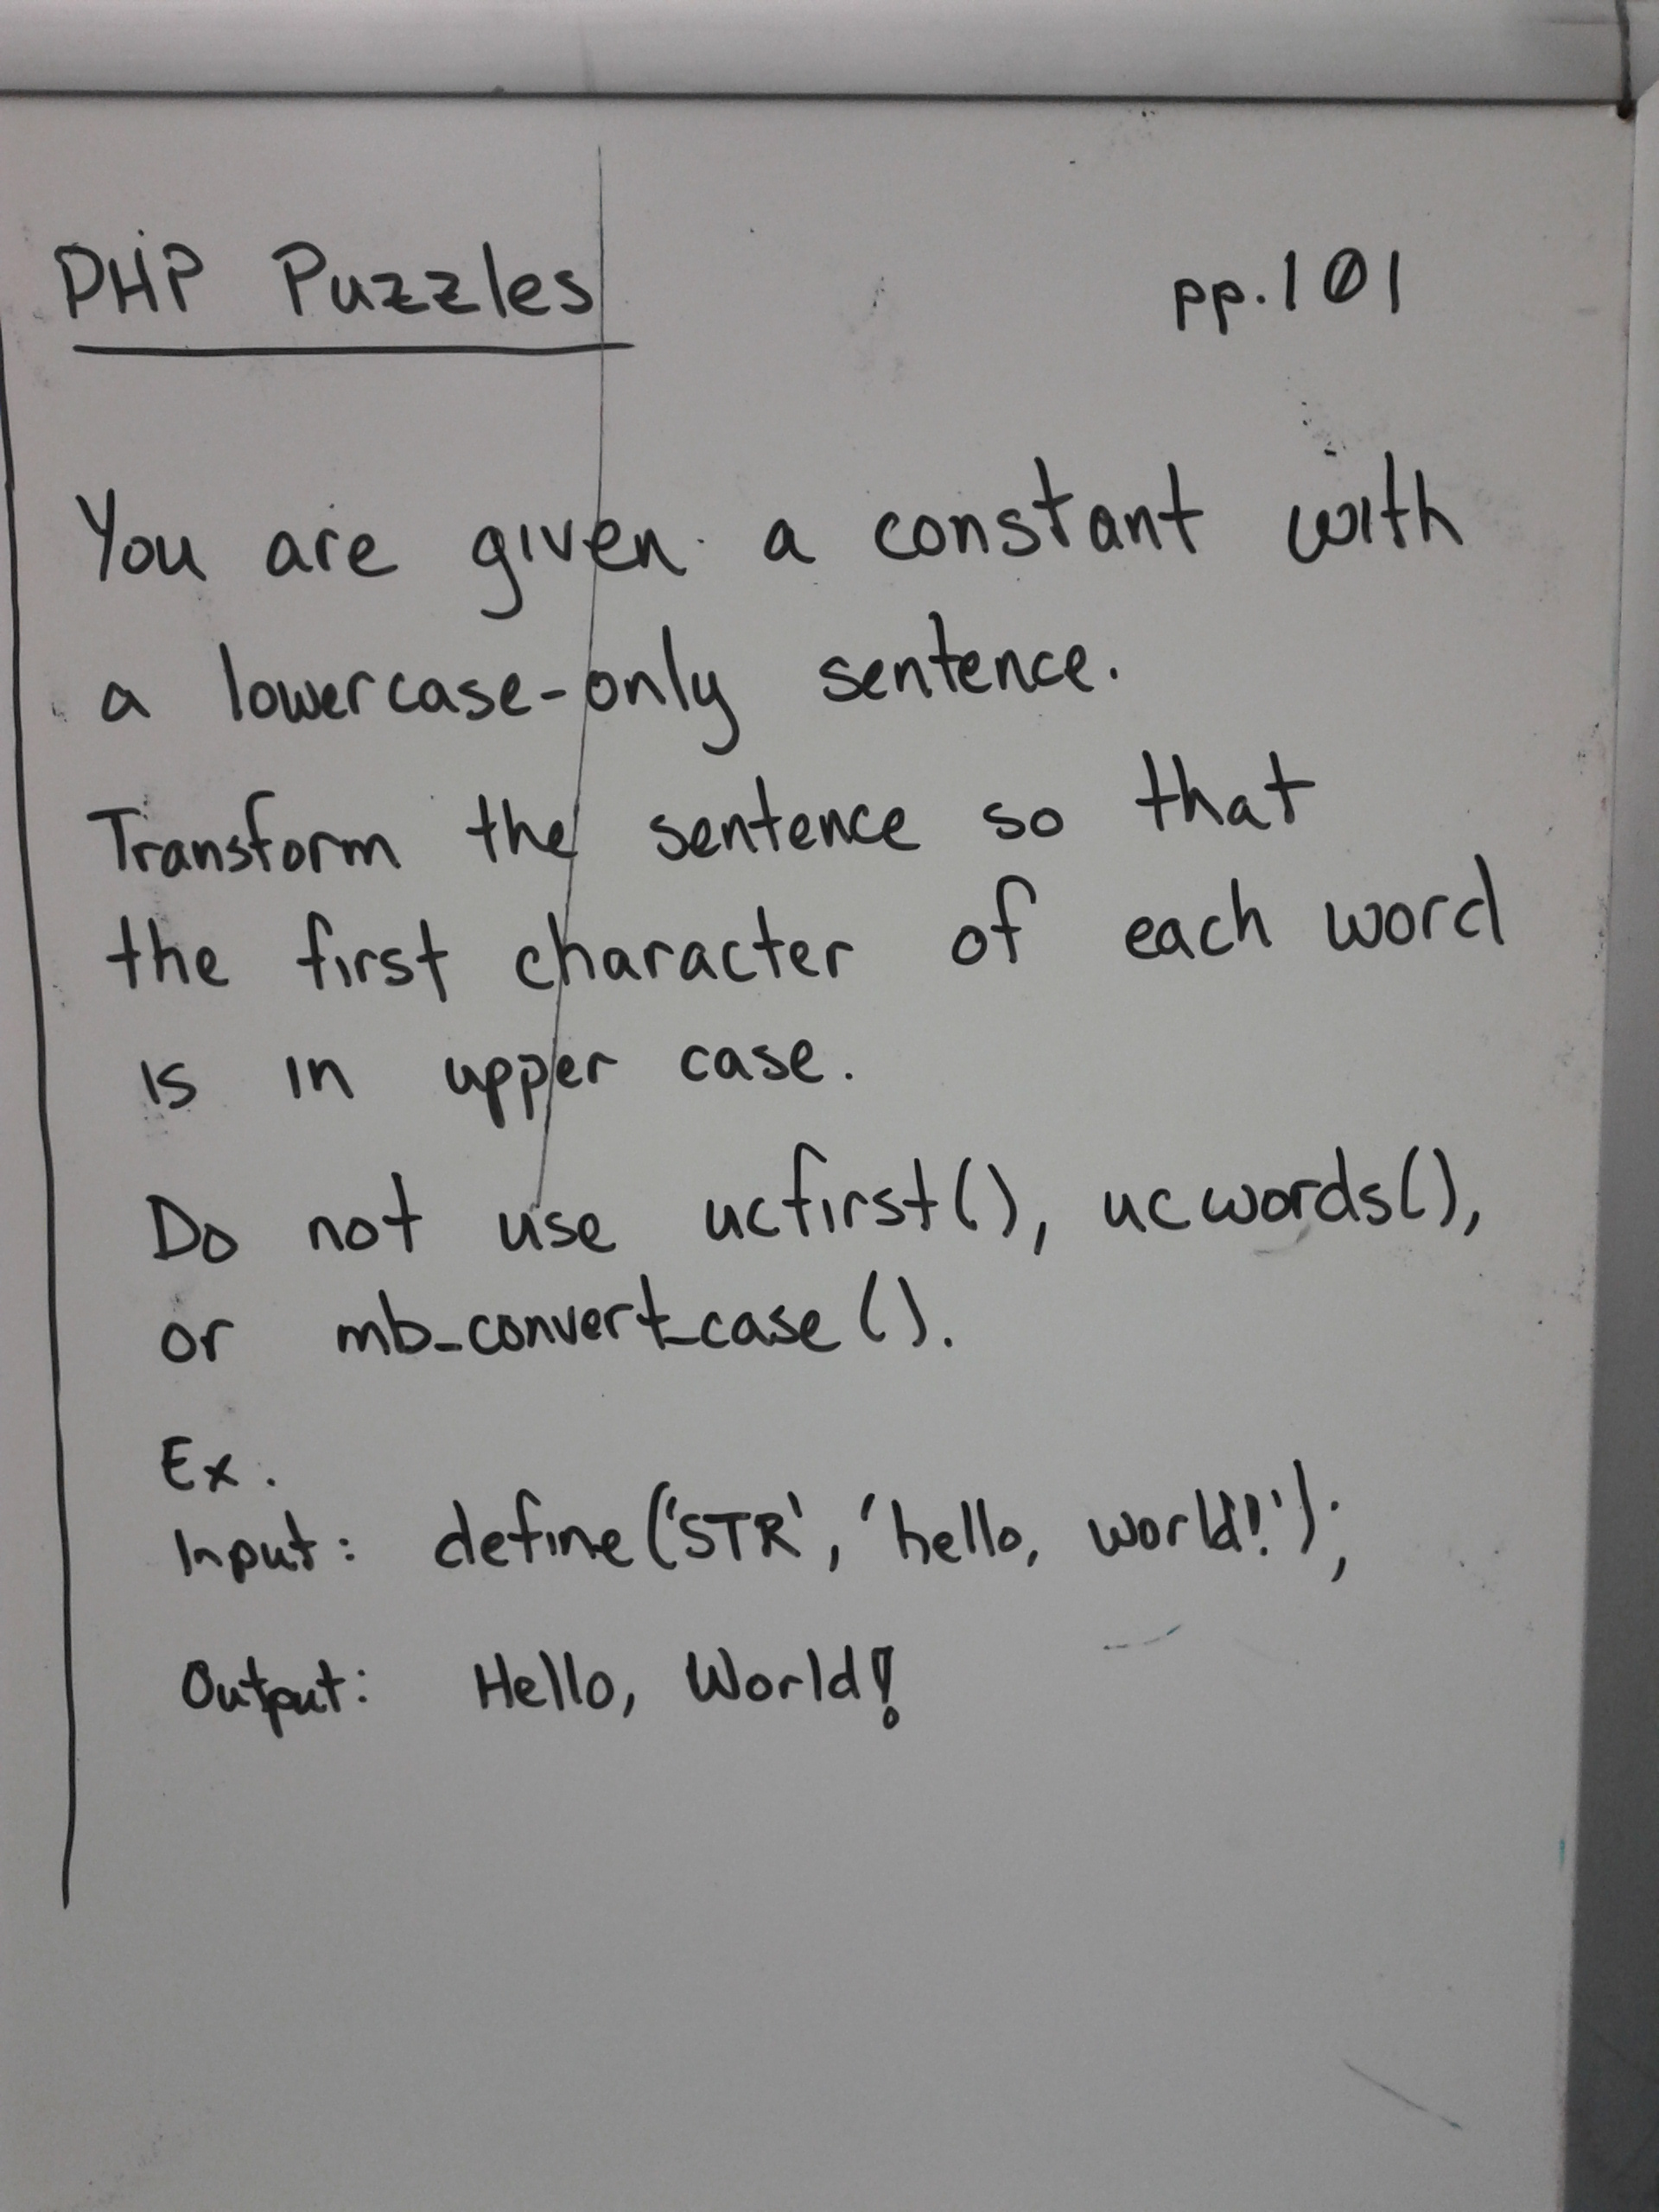 PHP Puzzles pp. 101
You are given a constant with
a lowercase-only sentence.
Transform the sentence so that
the first character of each word
is in upper case.
Do not use ucfirst(), ucwords(),
or mb_convert_case().
Ex.
Input: define('STR', 'hello, world!');
Output: Hello, World!